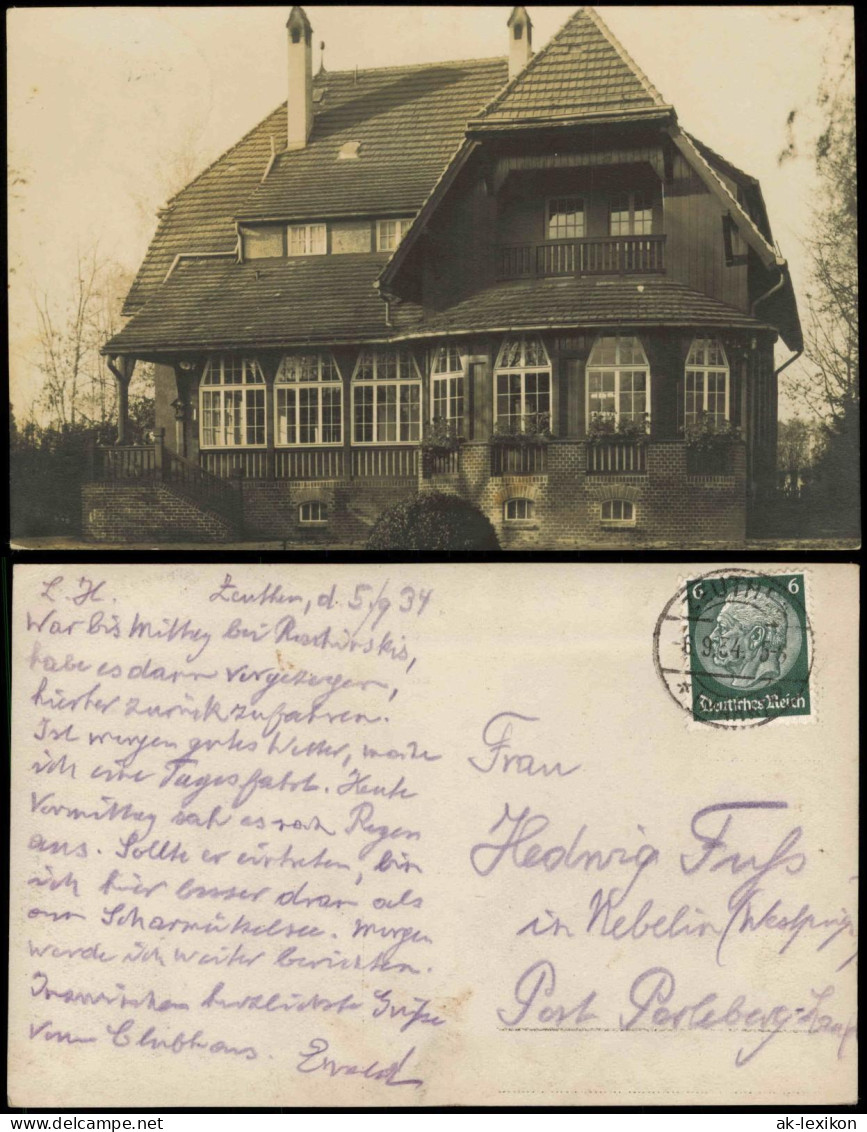 L. H. Zeuthen, d. 5/9 34
War bis Mittag bei
habe es dann vorgezogen,
hierher zurückzufahren.
Ist morgen gutes Wetter, mache
ich eine Tagesfahrt. Heute
Vormittag sah es nach Regen
aus. Sollte er eintreten, bin
ich hier besser dran als
am Scharmützelsee. Morgen
werde ich weiter berichten.
Inzwischen herzlichste Grüße
vom Clubhaus. Ewald
6 6
ZEUTHEN
6.9.34. 5-6
Deutsches Reich
Frau
Hedwig Fuß
in Kebelin (Westprign
Post Perleberg-Land
ak-lexikon